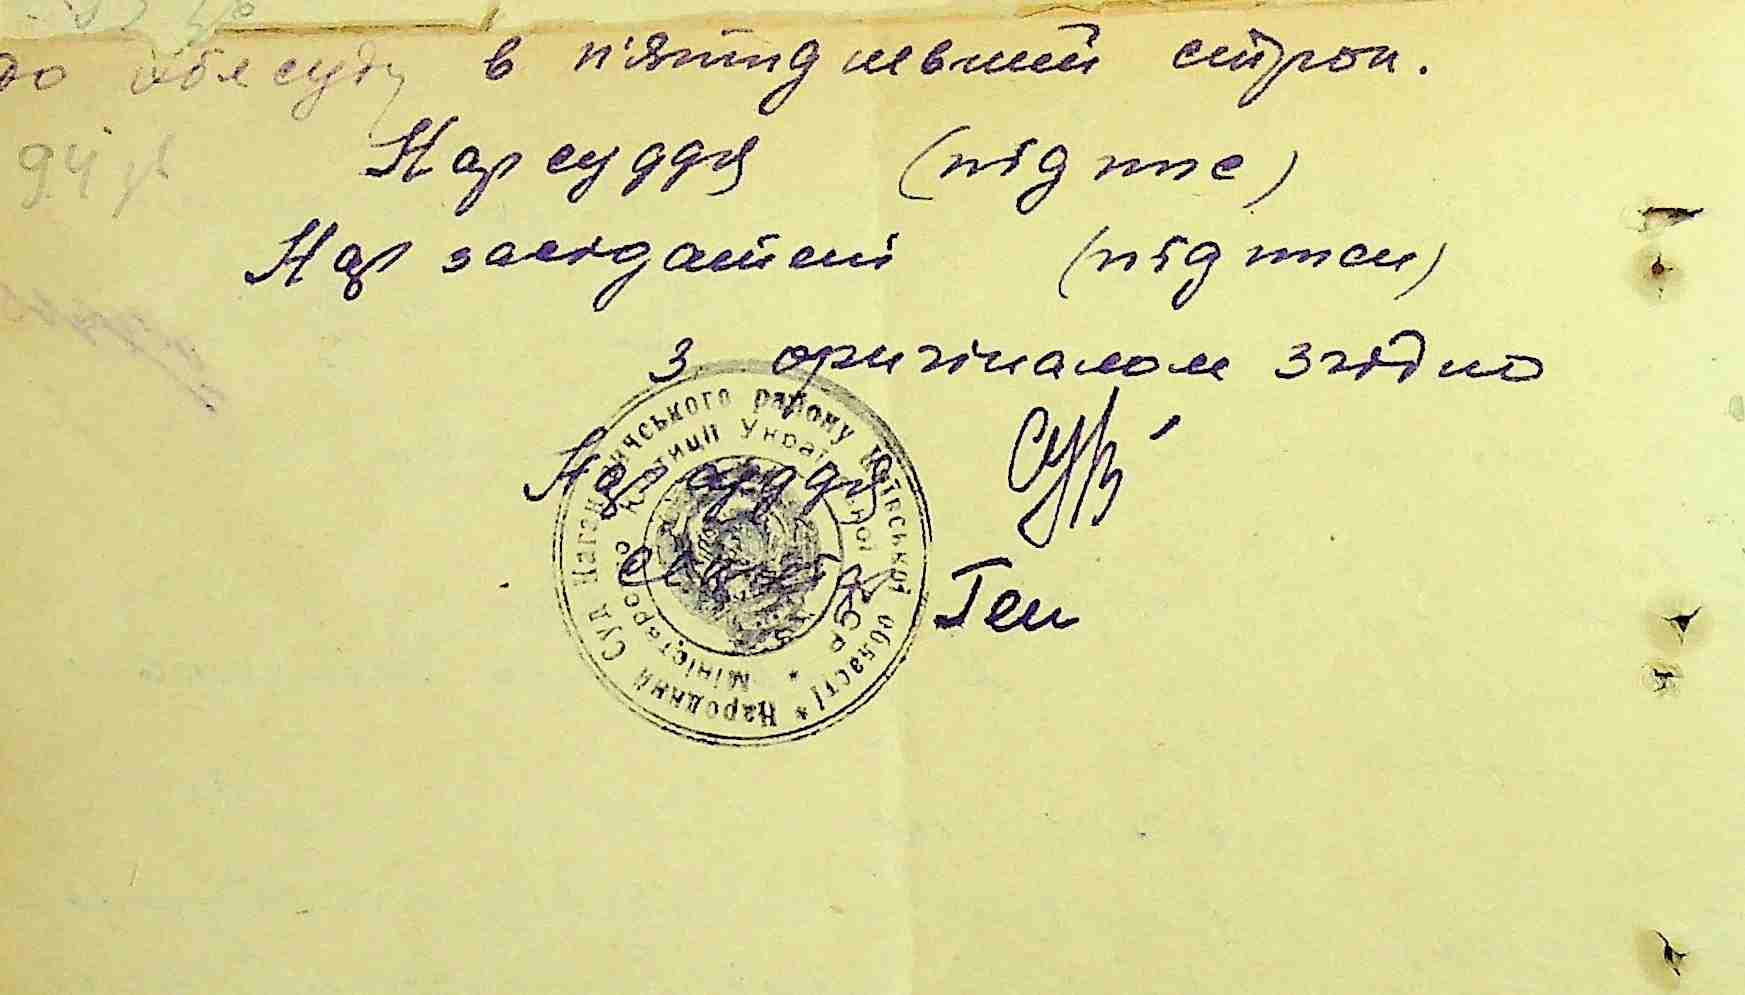 до облсуду в п'ятиденний строк.
Нарсуддя (підпис)
Нар засідателі (підписи)
З оригіналом згідно
Нарсуддя
Народний Суд Кагарлицького району Київської області *
Міністерство Юстиції Української РСР *